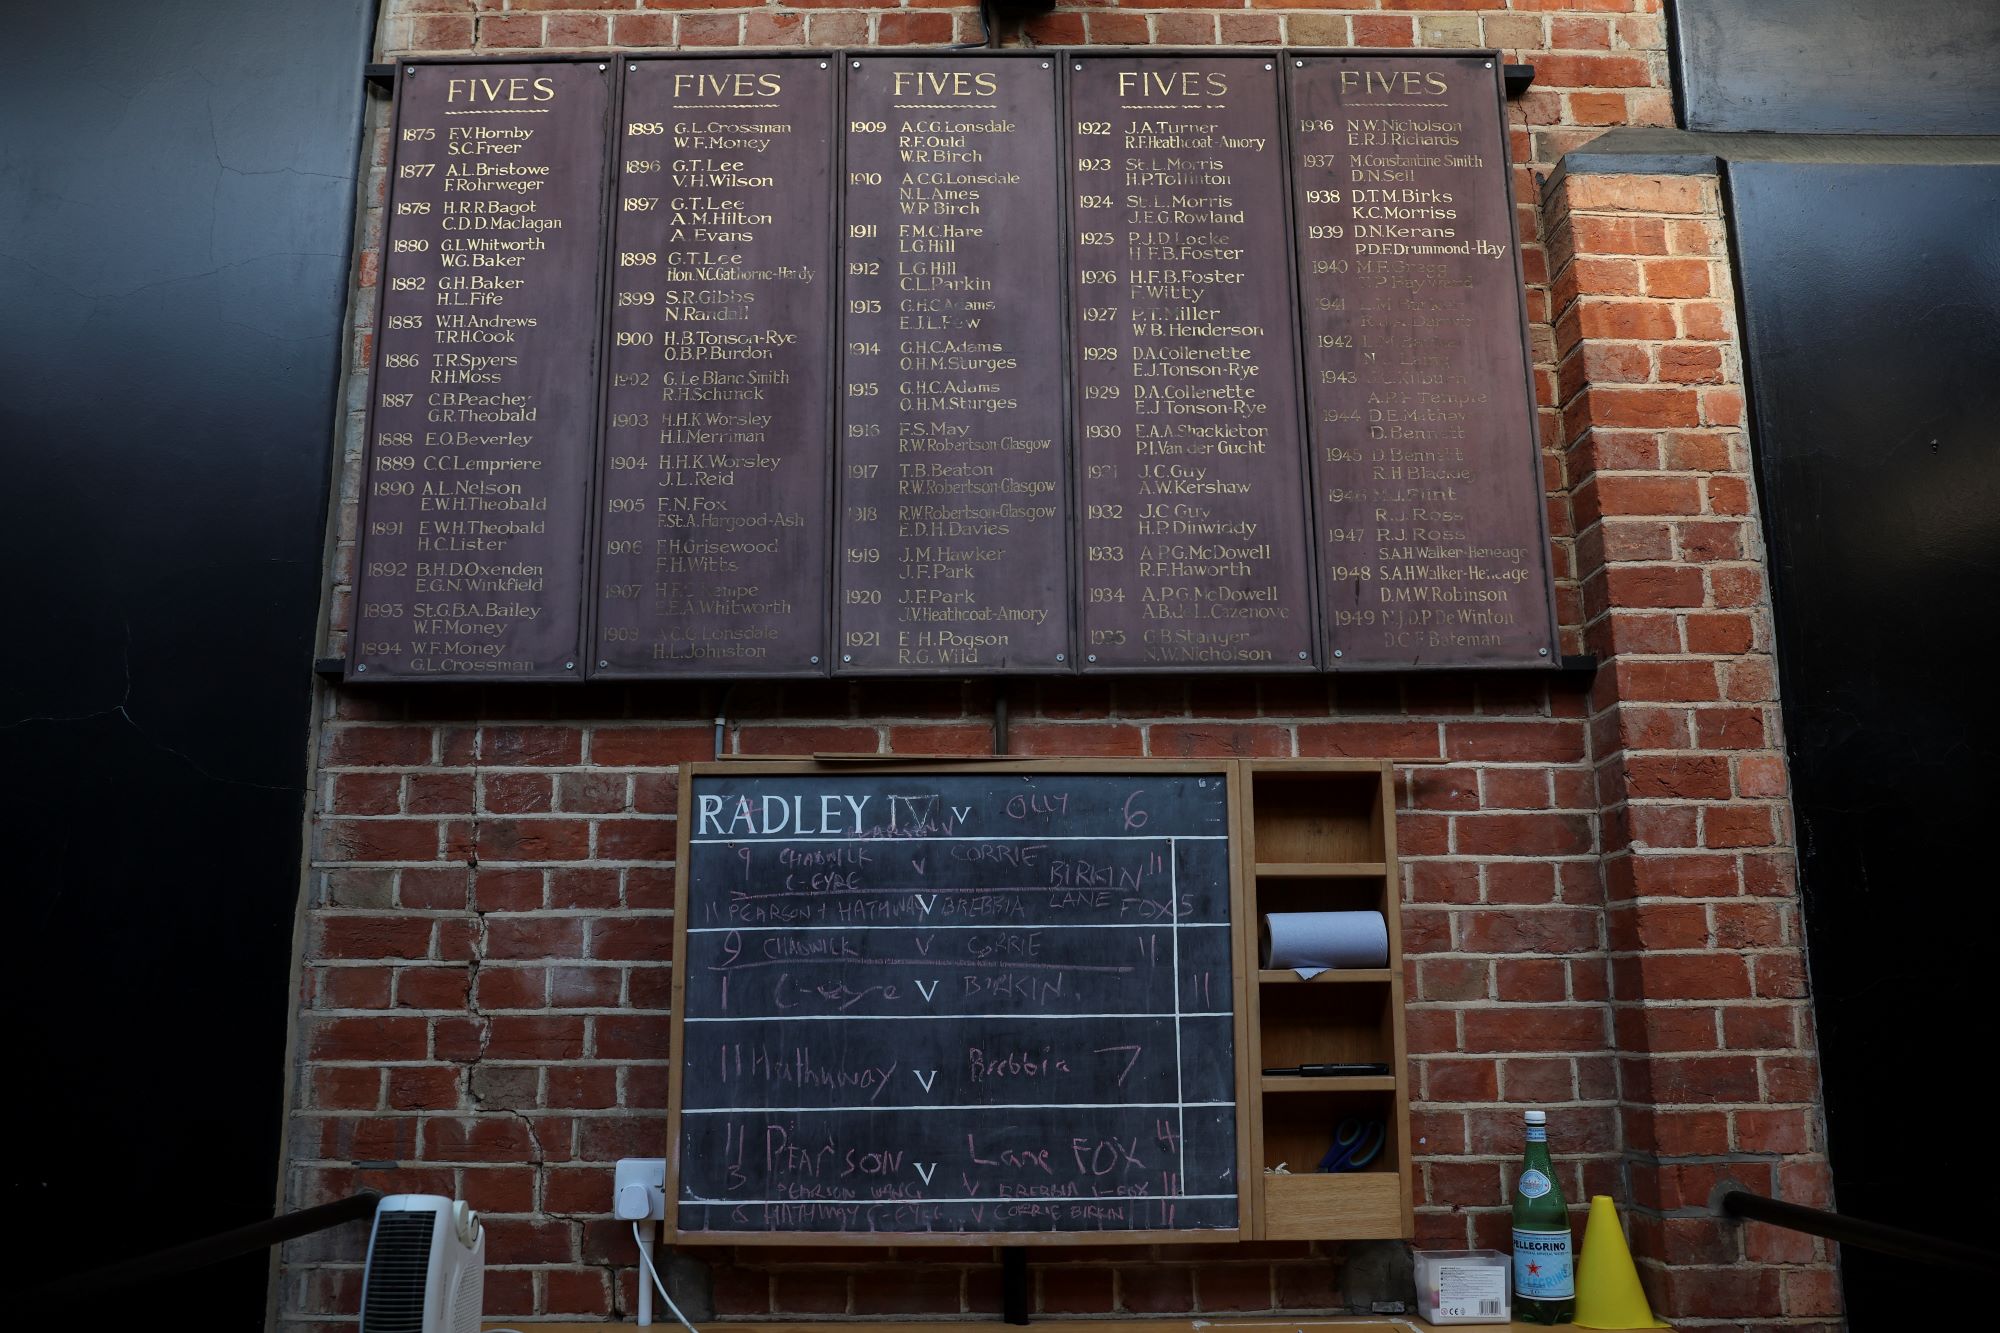 FIVES
1875 F.V. Hornby
S.C. Freer
1877 A.L. Bristowe
F. Rohrweger
1878 H.R.R. Bagot
C.D.D. Maclagan
1880 G.L. Whitworth
W.G. Baker
1882 G.H. Baker
H.L. Fife
1883 W.H. Andrews
T.R.H. Cook
1886 T.R. Spyers
R.H. Moss
1887 C.B. Peachey
G.R. Theobald
1888 E.O. Beverley
1889 C.C. Lempriere
1890 A.L. Nelson
E.W.H. Theobald
1891 E.W.H. Theobald
H.C. Lister
1892 B.H.D. Oxenden
E.G.N. Winkfield
1893 St.G.B.A. Bailey
W.F. Money
1894 W.F. Money
G.L. Crossman
FIVES
1895 G.L. Crossman
W.F. Money
1896 G.T. Lee
V.H. Wilson
1897 G.T. Lee
A.M. Hilton
A. Evans
1898 G.T. Lee
Hon. N.C. Gathorne-Hardy
1899 S.R. Gibbs
N. Randall
1900 H.B. Tonson-Rye
O.B.P. Burdon
1902 G. Le Blanc Smith
R.H. Schunck
1903 H.H.K. Worsley
H.I. Merriman
1904 H.H.K. Worsley
J.L. Reid
1905 F.N. Fox
F.St.A. Hargood-Ash
1906 F.H. Grisewood
F.H. Witts
1907 Kempe
E.E.A. Whitworth
A.C.G. Lonsdale
H.L. Johnston
FIVES
1909 A.C.G. Lonsdale
R.F. Ould
W.R. Birch
1910 A.C.G. Lonsdale
N.L. Ames
W.R. Birch
1911 F.M.C. Hare
L.G. Hill
1912 L.G. Hill
C.L. Parkin
1913 G.H.C. Adams
E.J.L. Few
1914 G.H.C. Adams
O.H.M. Sturges
1915 G.H.C. Adams
O.H.M. Sturges
1916 F.S. May
R.W. Robertson-Glasgow
1917 T.B. Beaton
R.W. Robertson-Glasgow
1918 R.W. Robertson-Glasgow
E.D.H. Davies
1919 J.M. Hawker
J.F. Park
1920 J.F. Park
J.V. Heathcoat-Amory
1921 E.H. Pogson
R.G. Wild
FIVES
1922 J.A. Turner
R.F. Heathcoat-Amory
1923 St.L. Morris
H.P. Tollinton
1924 St.L. Morris
J.E.G. Rowland
1925 P.J.D. Locke
H.F.B. Foster
1926 H.F.B. Foster
F. Witty
1927 P.T. Miller
W.B. Henderson
1928 D.A. Collenette
E.J. Tonson-Rye
1929 D.A. Collenette
E.J. Tonson-Rye
1930 E.A.A. Shackleton
P.I. Van der Gucht
1931 J.C. Guy
A.W. Kershaw
1932 J.C. Guy
H.P. Dinwiddy
1933 A.P.G. McDowell
R.F. Haworth
1934 A.P.G. McDowell
A.B.de L. Cazenove
1935 G.B. Stanger
N.W. Nicholson
FIVES
1936 N.W. Nicholson
E.R.J. Richards
1937 M. Constantine Smith
D.N. Sell
1938 D.T.M. Birks
K.C. Morriss
1939 D.N. Kerans
P.D.F. Drummond-Hay
1940 M.F. Gregg
Hayward
1941
1942
1943 Kilburn
A.P.F. Temple
1944
D. Bennett
1945 D. Bennett
R.H. Blackley
1946 Flint
R.J. Ross
1947 R.J. Ross
S.A.H. Walker-Heneage
1948 S.A.H. Walker-Heneage
D.M.W. Robinson
1949 N.J.D.P. De Winton
D.C.F. Bateman
RADLEY IV v OLLY 6
9 CHADWICK V CORRIE
C-EYRE BIRKIN 11
11 PEARSON + HATHWAY V BREBBIA LANE FOX 5
9 CHADWICK V CORRIE 11
1 C-eyre V BIRKIN. 11
11 Hathway V Brebbia 7
11 PEARSON V Lane FOX 4
3 PEARSON V BREBBIA L-FOX 11
6 HATHWAY C-EYRE V CORRIE BIRKIN 11
S.PELLEGRINO